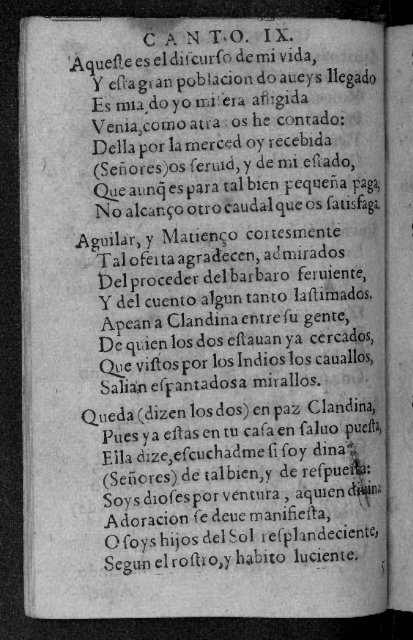 CANTO. IX.
Aqueſte es el diſcurſo de mi vida,
Y eſta gran poblacion do aueys llegado
Es mia, do yo miſera afligida
Venia, como atras os he contado:
Della por la merced oy recebida
(Señores) os ſeruid, y de mi eſtado,
Que aunq̃ es para tal bien pequeña paga,
No alcanço otro caudal que os ſatisfaga.
Aguilar, y Matienço cortesmente
Tal oferta agradecen, admirados
Del proceder del barbaro feruiente,
Y del cuento algun tanto laſtimados.
Apean a Clandina entre ſu gente,
De quien los dos eſtauan ya cercados,
Que viſtos por los Indios los cauallos,
Salian eſpantados a mirallos.
Queda (dizen los dos) en paz Clandina,
Pues ya eſtas en tu caſa en ſaluo pueſta,
Ella dize, eſcuchadme ſi ſoy dina
(Señores) de tal bien, y de reſpueſta:
Soys dioſes por ventura, a quien diuina
Adoracion ſe deue manifieſta,
O ſoys hijos del Sol reſplandeciente,
Segun el roſtro, y habito luciente.